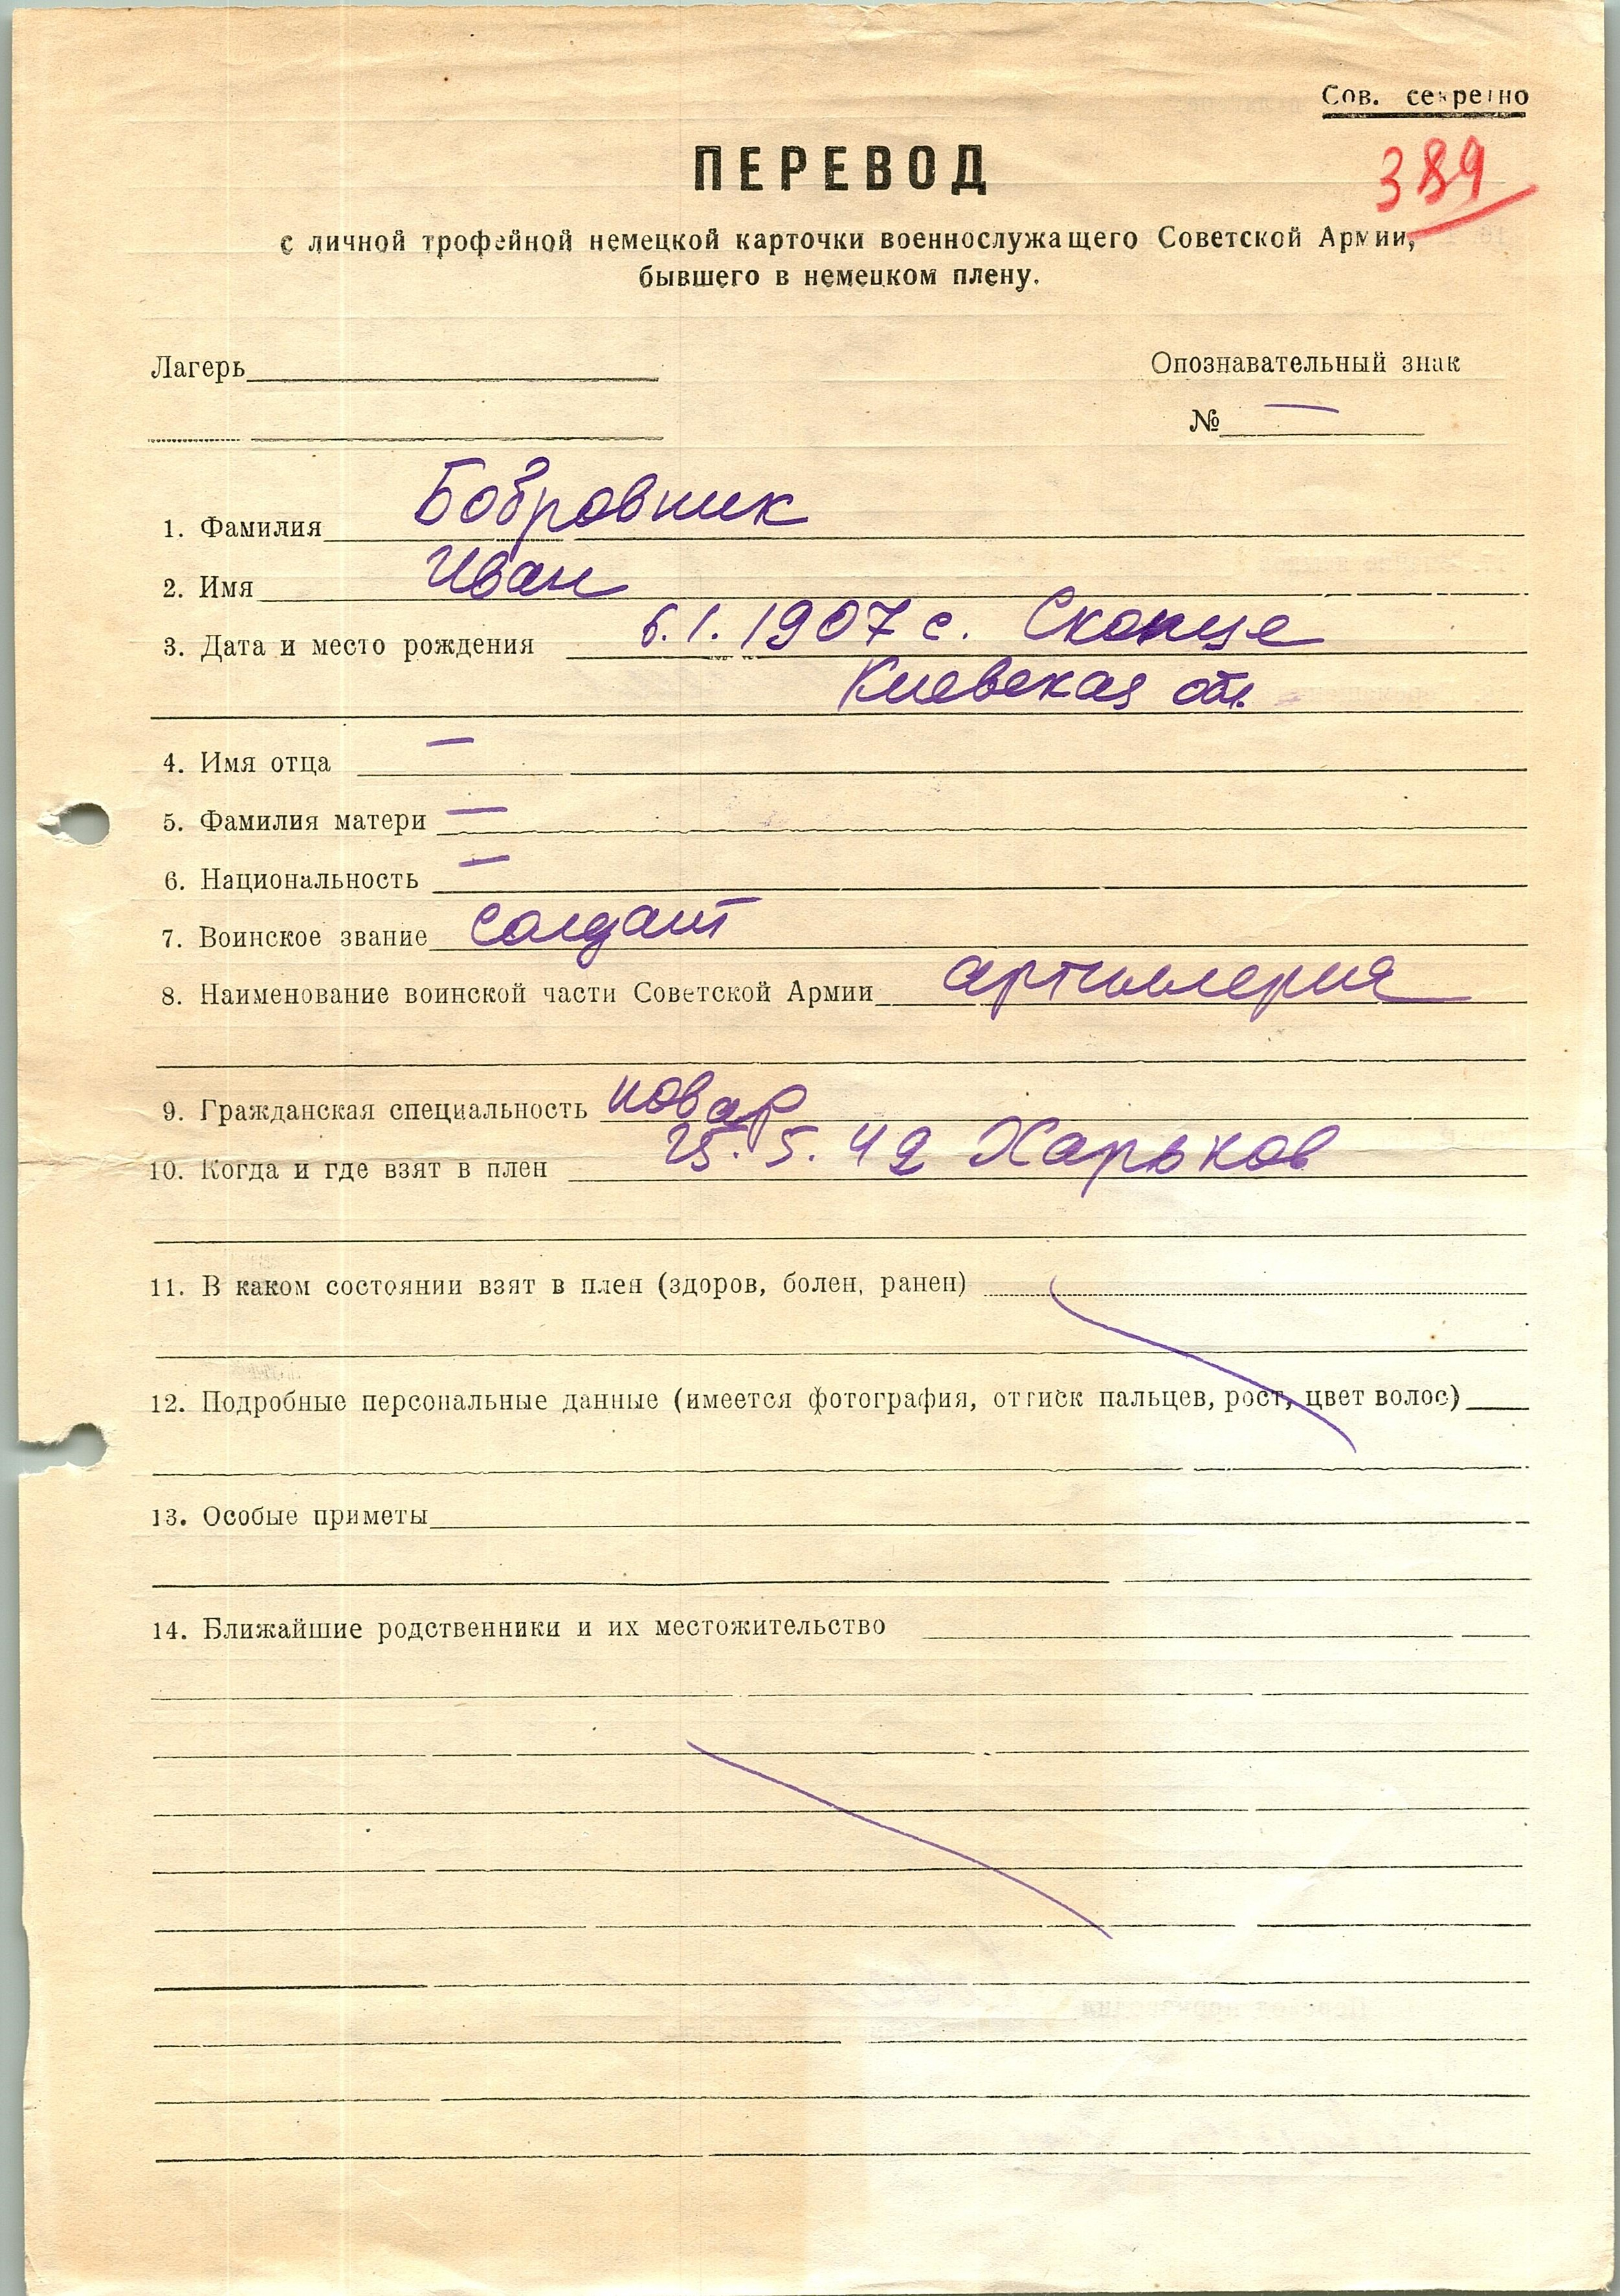 Сов. секретно
ПЕРЕВОД
389
с личной трофейной немецкой карточки военнослужащего Советской Армии,
бывшего в немецком плену.
Лагерь
Опознавательный знак
№ —
1. Фамилия Бобровник
2. Имя Иван
3. Дата и место рождения 6.1.1907 с. Скопце
Киевская обл.
4. Имя отца —
5. Фамилия матери —
6. Национальность —
7. Воинское звание солдат
8. Наименование воинской части Советской Армии артиллерия
9. Гражданская специальность повар
10. Когда и где взят в плен 25.5.42 Харьков
11. В каком состоянии взят в плен (здоров, болен, ранен)
12. Подробные персональные данные (имеется фотография, оттиск пальцев, рост, цвет волос)
13. Особые приметы
14. Ближайшие родственники и их местожительство